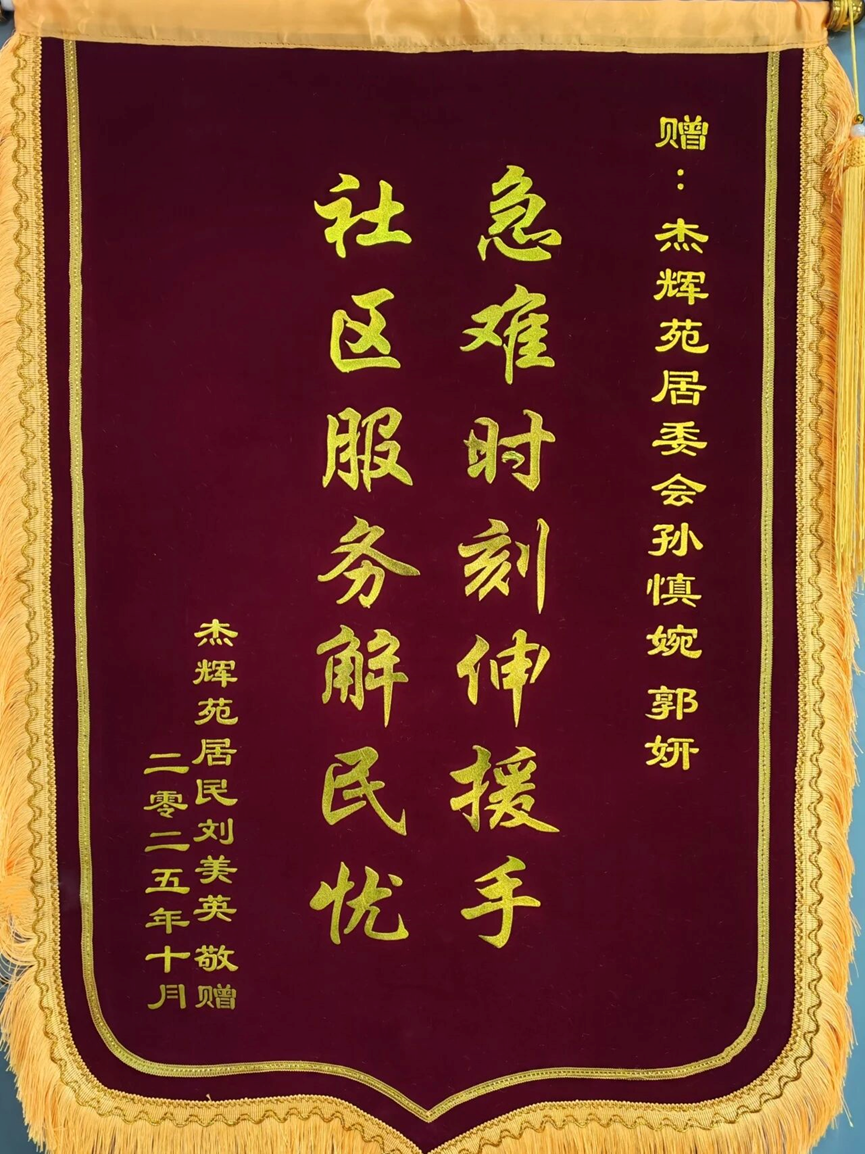 赠：杰辉苑居委会孙慎婉 郭妍
急难时刻伸援手
社区服务解民忧
杰辉苑居民刘美英 敬赠
二零二五年十月